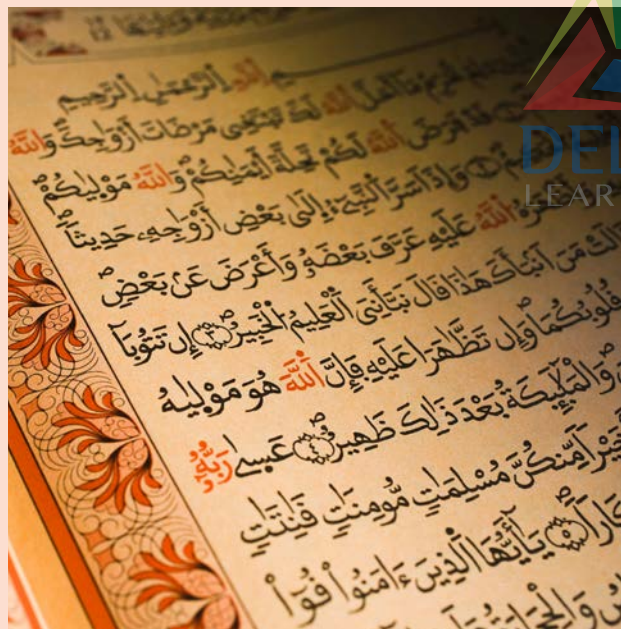 بِسْمِ اِللَّهِ اِلرَّحْمَٰنِ اِلرَّحِيمِ
لِمَ تُحَرِّمُ مَا أَحَلَّ اَللَّهُ لَكَ تَبْتَغِے مَرْضَاتَ أَزْوَٰجِكَۖ وَاللَّهُ
قَدْ فَرَضَ اَللَّهُ لَكُمْ تَحِلَّةَ أَيْمَٰنِكُمْۖ وَاللَّهُ مَوْلَيٰكُمْۖ
وَإِذَ اَسَرَّ اَلنَّبِےٓءُ إِلَىٰ بَعْضِ أَزْوَٰجِهِۦ حَدِيثاٗۖ
اُللَّهُ عَلَيْهِ عَرَّفَ بَعْضَهُۥ وَأَعْرَضَ عَنۢ بَعْضٖۖ
مَنَ اَنۢبَأَكَ هَٰذَا قَالَ نَبَّأَنِيَ اَلْعَلِيمُ اُلْخَبِيرُۖ ۝ إِن تَتُوبَآ
قُلُوبُكُمَاۖ وَإِن تَظَّٰهَرَا عَلَيْهِ فَإِنَّ اَللَّهَ هُوَ مَوْلَيٰهُ
وَالْمَلَٰٓئِكَةُ بَعْدَ ذَٰلِكَ ظَهِيرٌۖ ۝ عَسَىٰ رَبُّهُۥٓ
خَيْراٗ مِّنكُنَّ مُسْلِمَٰتٖ مُّومِنَٰتٖ قَٰنِتَٰتٖ
۝ يَٰٓأَيُّهَا اَلذِينَ ءَامَنُواْ قُوٓاْ
وَالْحِجَارَةُ
LEAR